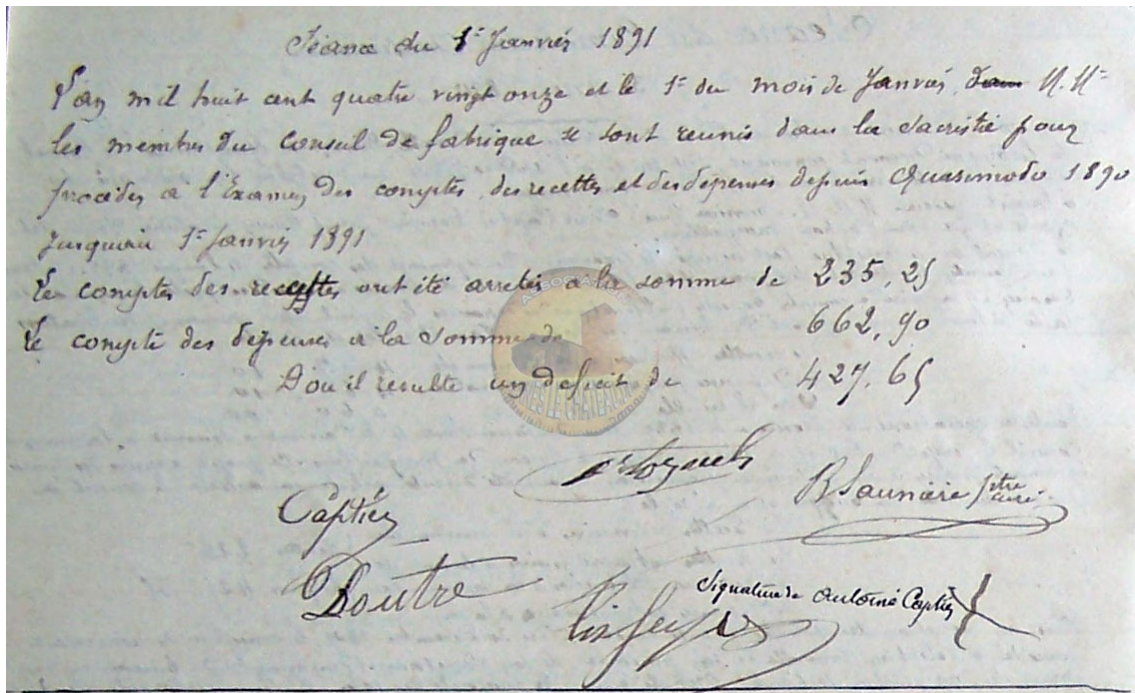 Séance du 1er Janvier 1891
L'an mil huit cent quatre vingt onze et le 1er du mois de Janvier, M.Mrs
les membres du Conseil de fabrique se sont reunis dans la Sacristie pour
proceder a l'Examen des comptes des recettes et des depenses depuis Quasimodo 1890
Jusqu'au 1er Janvier 1891
Le comptes des recettes ont été arretés a la somme de 235,25
Le compte des depenses a la Somme de 662,90
D'ou il resulte un deficit de 427,65
ASSOCIATION
RENNES LE CHATEAU
BSaunière ptre curé
Captier
Doutre
Signature de Antoine Captier X